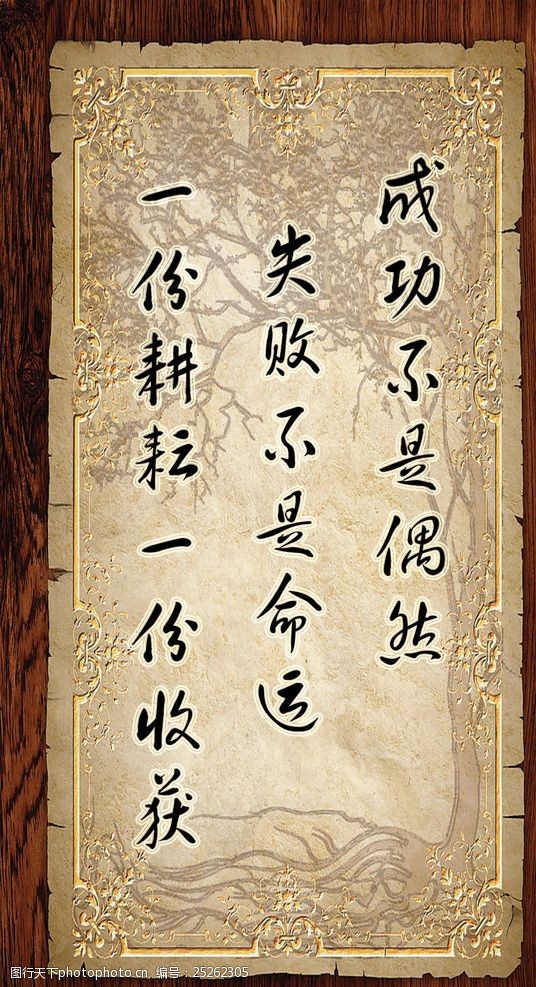 成功不是偶然
失败不是命运
一份耕耘一份收获
图行天下photophoto.cn 编号：25262305